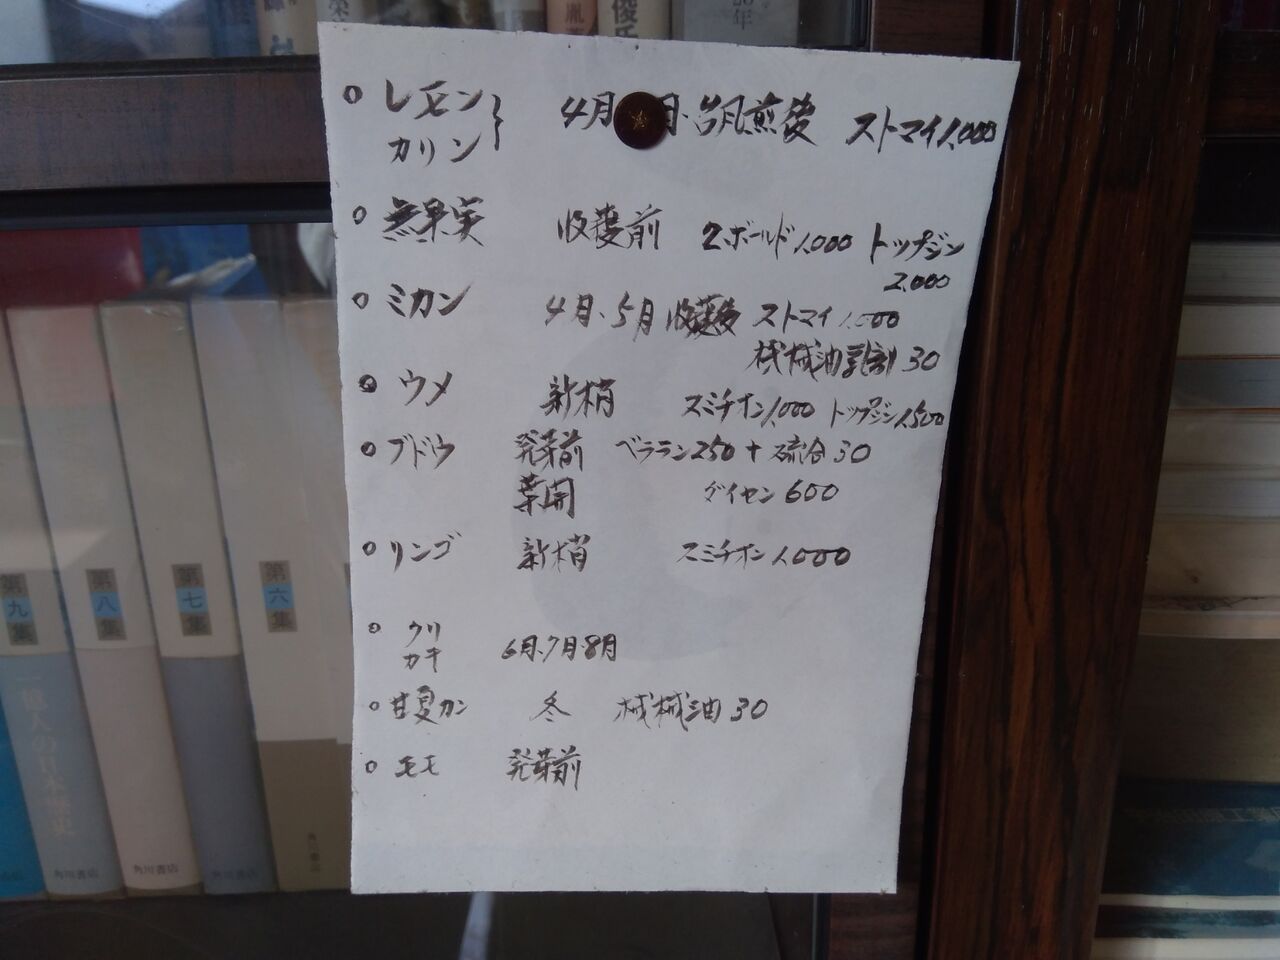 栄
胤
俊氏
20年
○ レモン} 4月 月・台風前後 ストマイ1,000
カリン
○ 無果実 収穫前 Zボールド1,000 トップジン
2,000
○ ミカン 4月、5月 収穫後 ストマイ1,000
機械油乳剤30
○ ウメ 新梢 スミチオン1,000 トップジン1,500
○ ブドウ 発芽前 ベララン250+硫合30
葉開 ダイセン600
○ リンゴ 新梢 スミチオン1,000
○ クリ
カキ 6月、7月・8月
○ 甘夏カン 冬 機械油30
○ モモ 発芽前
第九集
第八集
第七集
第六集
一億人の昭和史
角川書店
角川書店
角川書店
角川書店